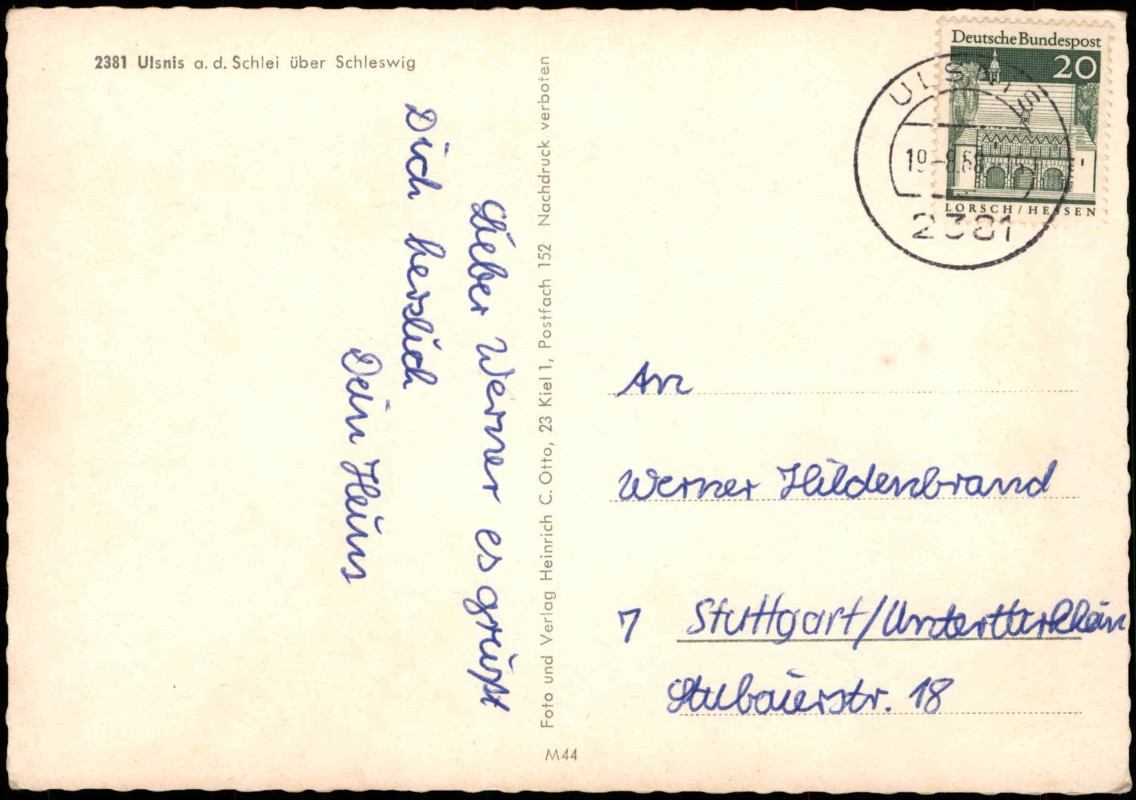 2381 Ulsnis a. d. Schlei über Schleswig
Lieber Werner es grüßt
Dich herzlich
Dein Heinz
Foto und Verlag Heinrich C. Otto, 23 Kiel 1, Postfach 152 Nachdruck verboten
M44
Deutsche Bundespost
20
LORSCH/HESSEN
ULSNIS
19.-8.68
2381
An
Werner Hildenbrand
7 Stuttgart/Untertürkheim
Stubaierstr. 18